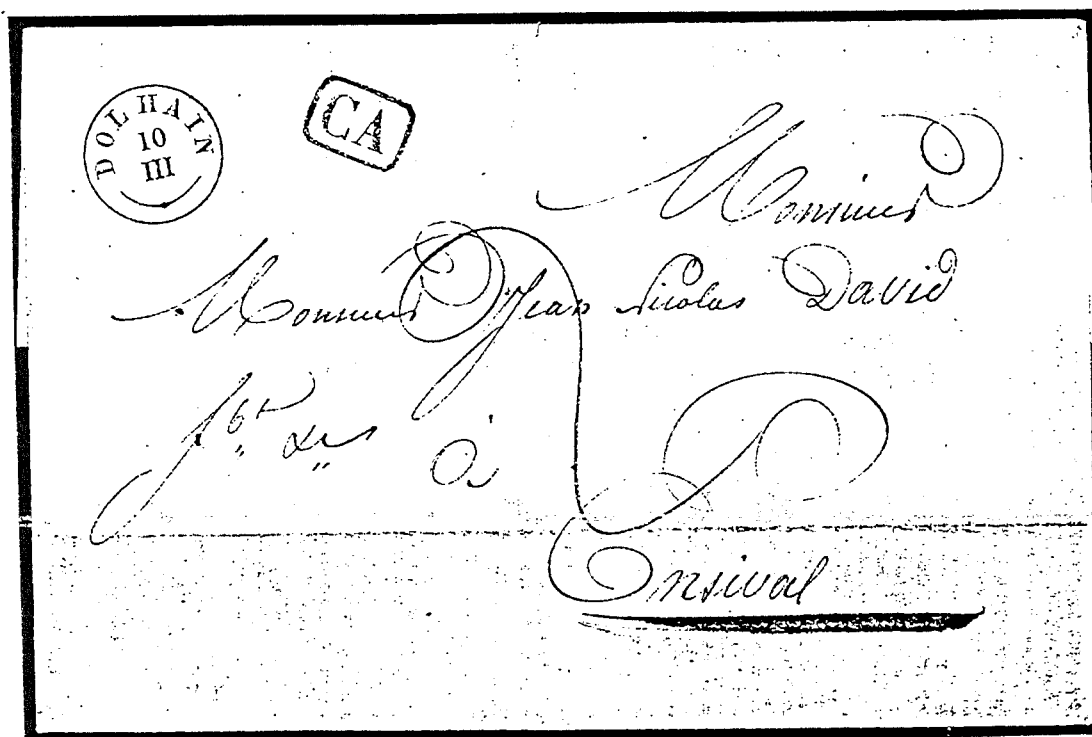 DOLHAIN
10
III
CA
Monsieur
Monsieur Jean Nicolas David
à
Ensival